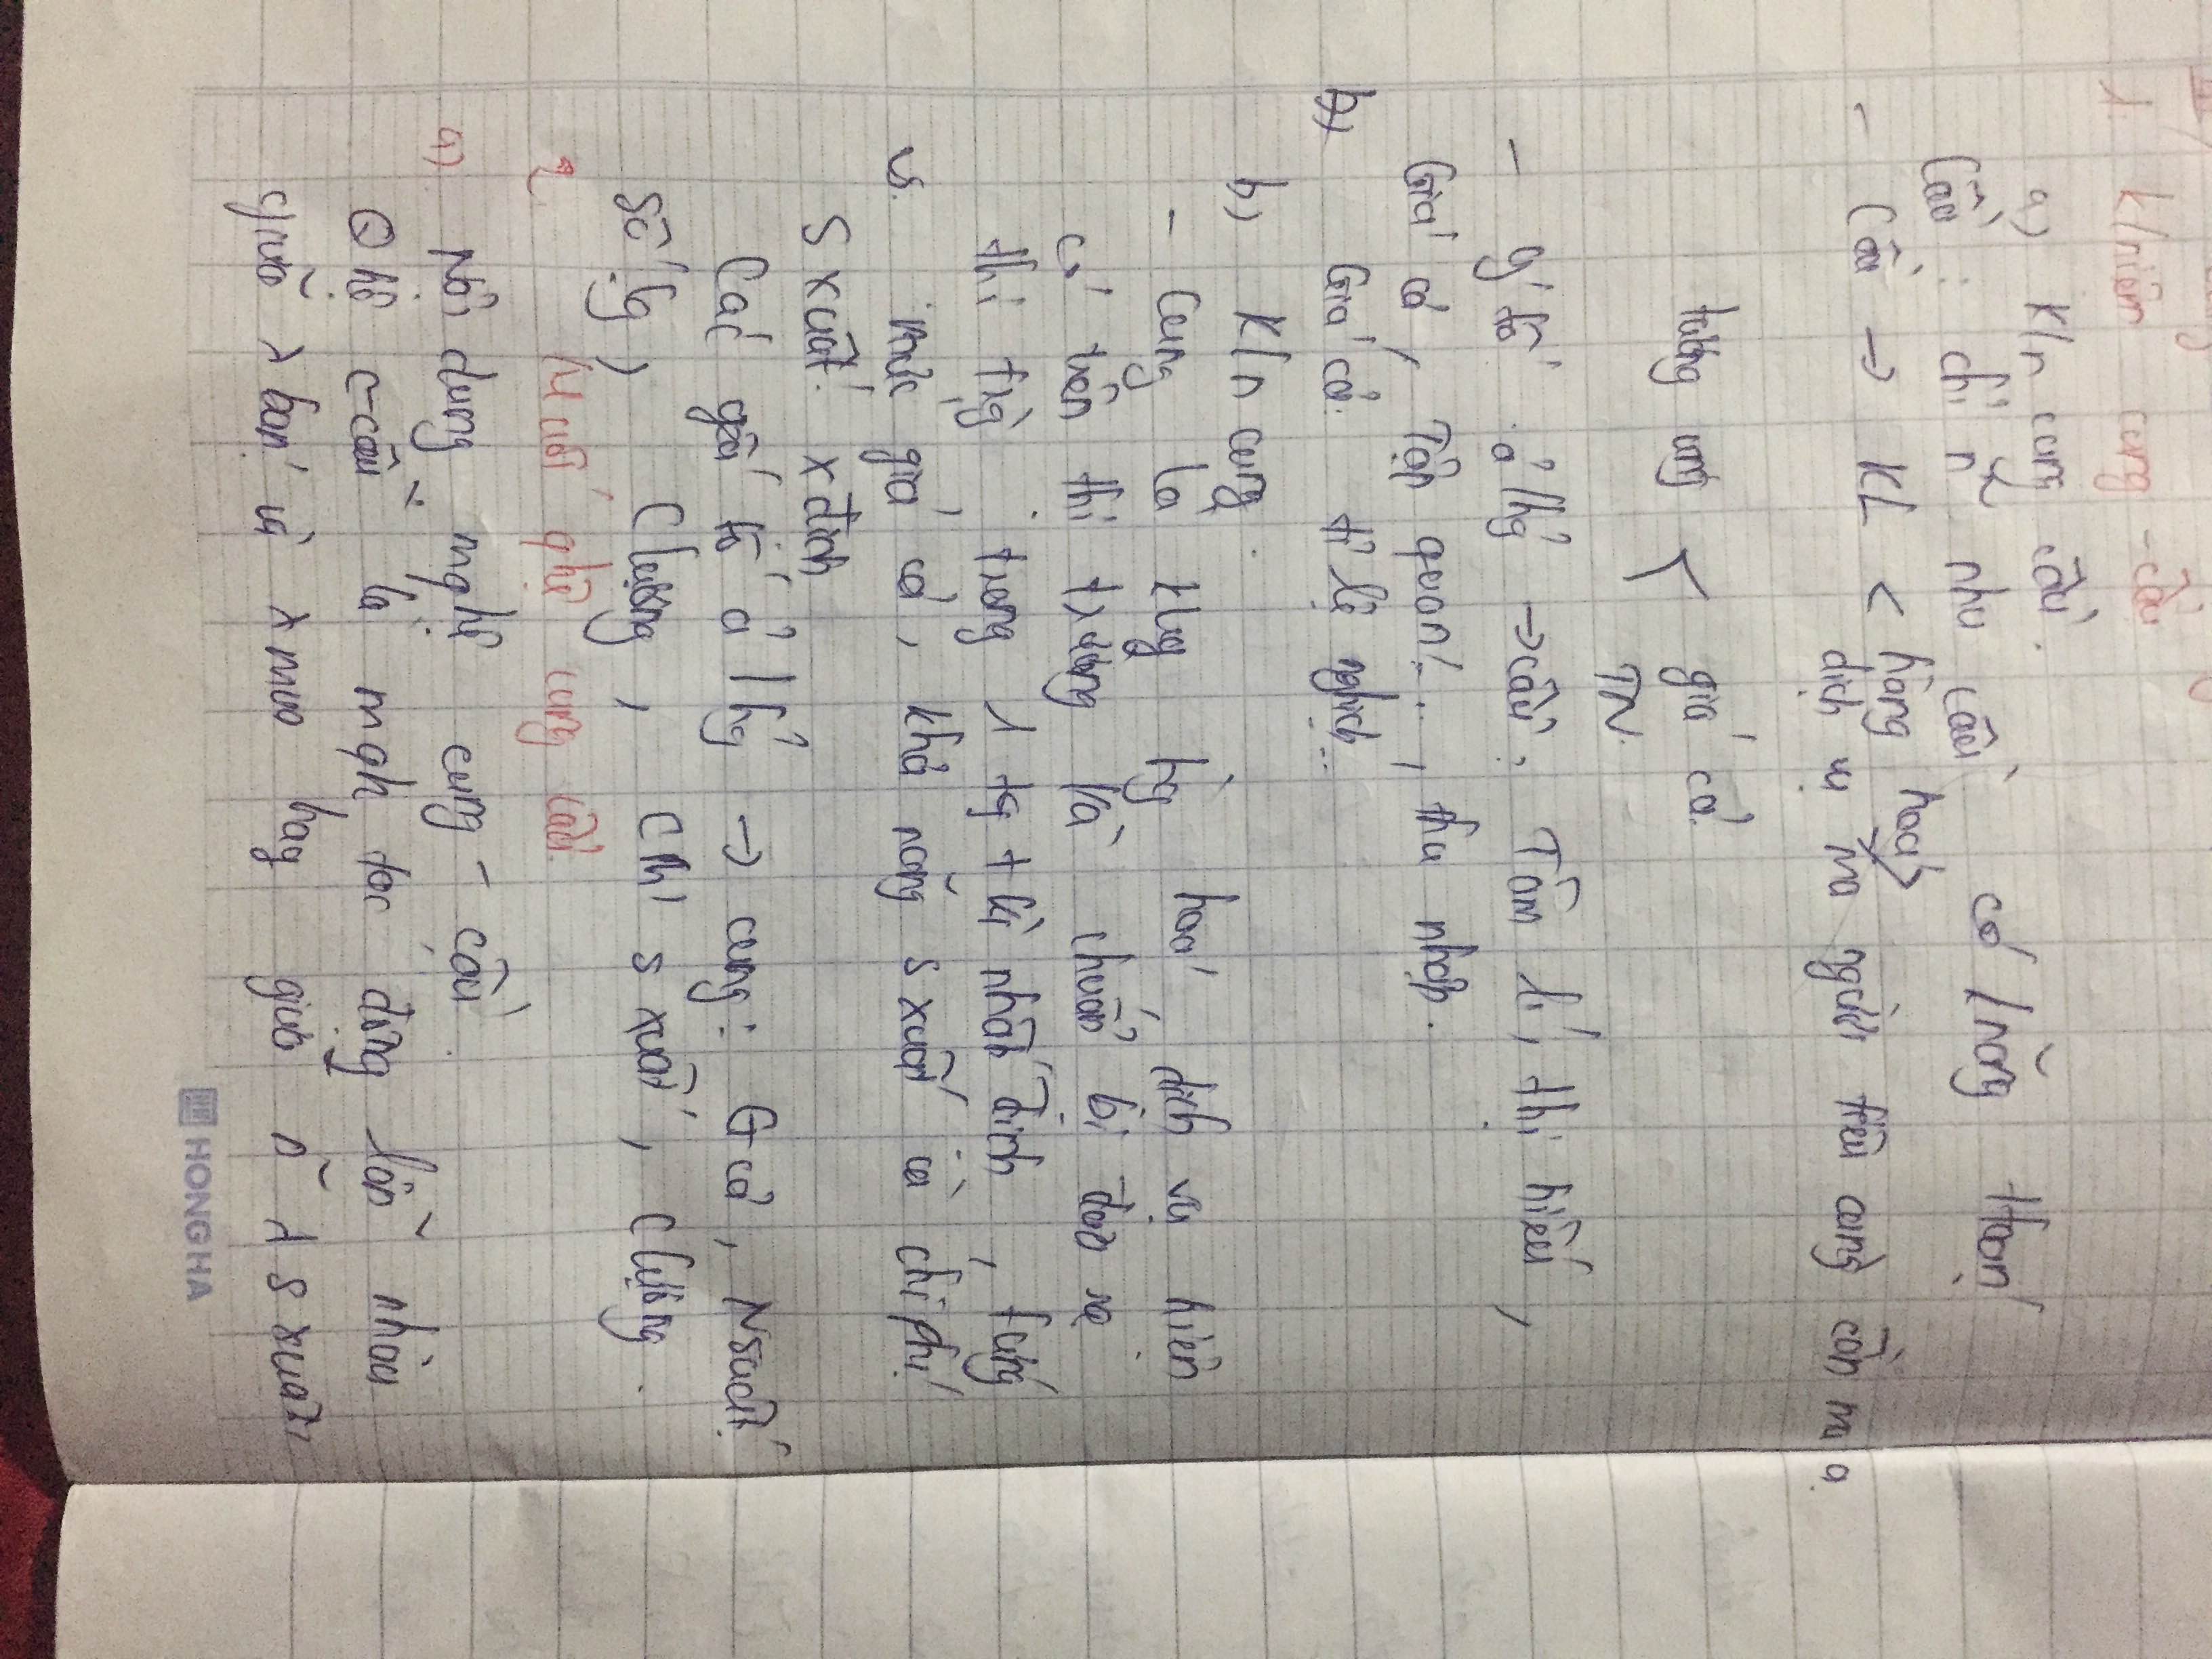 1. K/niệm cung - cầu
a) K/n cung cầu.
Cầu: chỉ n~ nhu cầu có k/năng thanh
- Cầu → KL < hàng hoá
dịch vụ mà người tiêu cùng cần mua.
tương ứng < giá cả
TN.
- Y tố ả/hg → cầu: Tâm lí, thị hiếu,
Giá cả, Tập quán..., thu nhập.
Giá cả tỉ lệ nghịch...
b) K/n cung.
- Cung là klg hg hoá dịch vụ hiện
có trên thị trường và chuẩn bị đưa ra
thị trg trong 1 tg t kỳ nhất định, tương
ứ. mức giá cả, khả năng s xuất và chi phí
s xuất xđịnh
Các yếu tố ả/hg → cung: Gcả, Nsuất
Số lg) Clượng, CPhí s xuất, Clượng.
2. M qhệ cung cầu.
a) Nội dung mqhệ cung - cầu.
Q hệ c-cầu là mqh tác động lẫn nhau
giữa x bán và x mua hay giữa n~ ~ s xuất
HONG HA